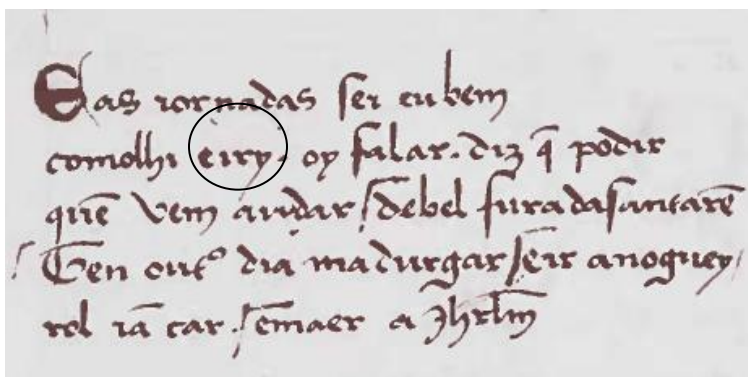 Eas iornadas sei eu bem
comolhi eiry. oy falar. diz q̄ podir
quē vem andar / debel furadasantarē
/ Een outº dia madurgar / eir anoguey /
rol iātar. / emaer a Jhrlm̄